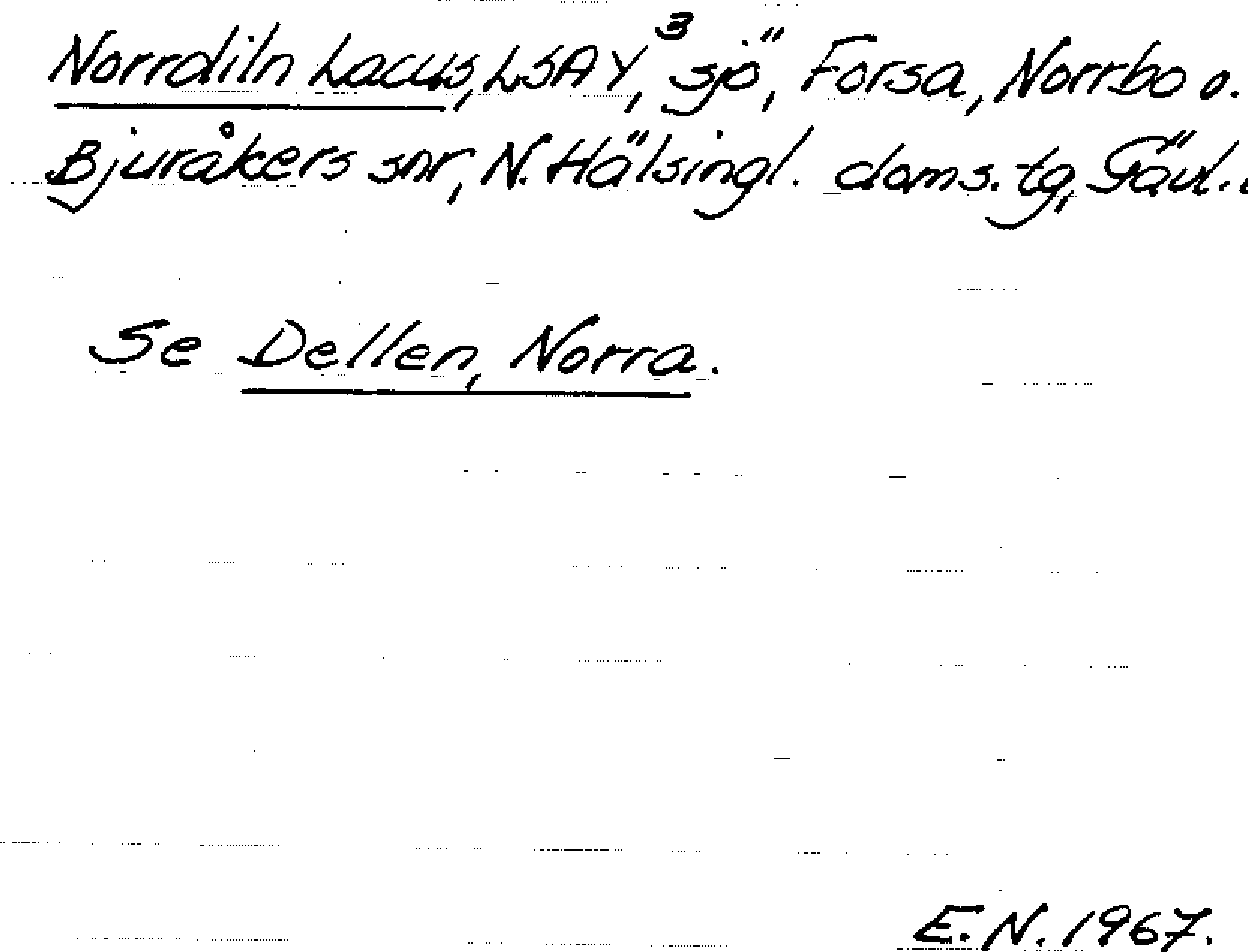 Norrdiln Lacus, LSA Y³, sjö, Forsa, Norrbo o.
Bjuråkers snr, N. Hälsingl. doms. tg, Gävl.
Se Dellen, Norra.
E.N. 1967.